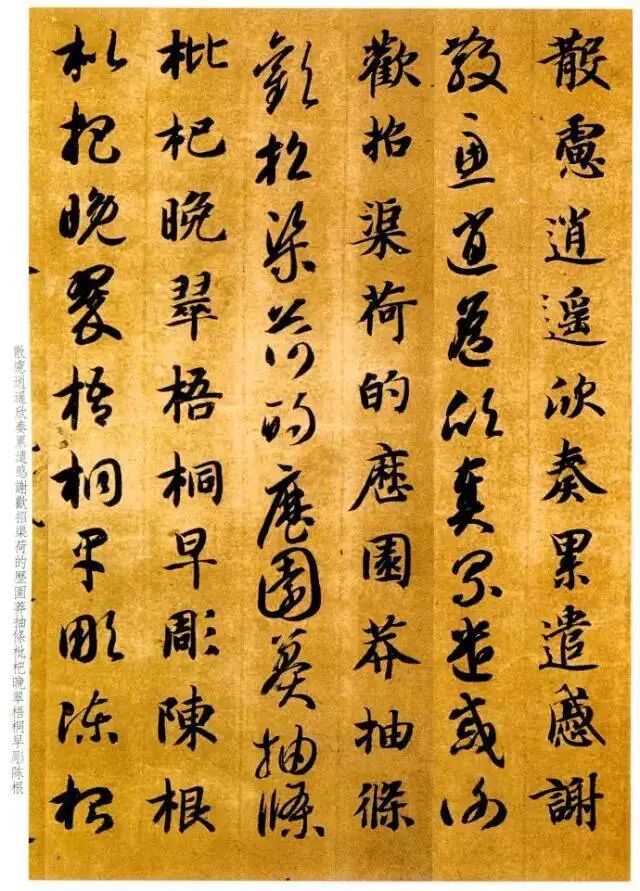 散慮逍遥欣奏累遣慼謝
散慮逍遥欣奏累遣慼謝
歡招渠荷的歷園莽抽條
歡招渠荷的歷園莽抽條
枇杷晚翠梧桐早彫陳根
枇杷晚翠梧桐早彫陳根
散慮逍遥欣奏累遣慼謝歡招渠荷的歷園莽抽條枇杷晚翠梧桐早彫陳根